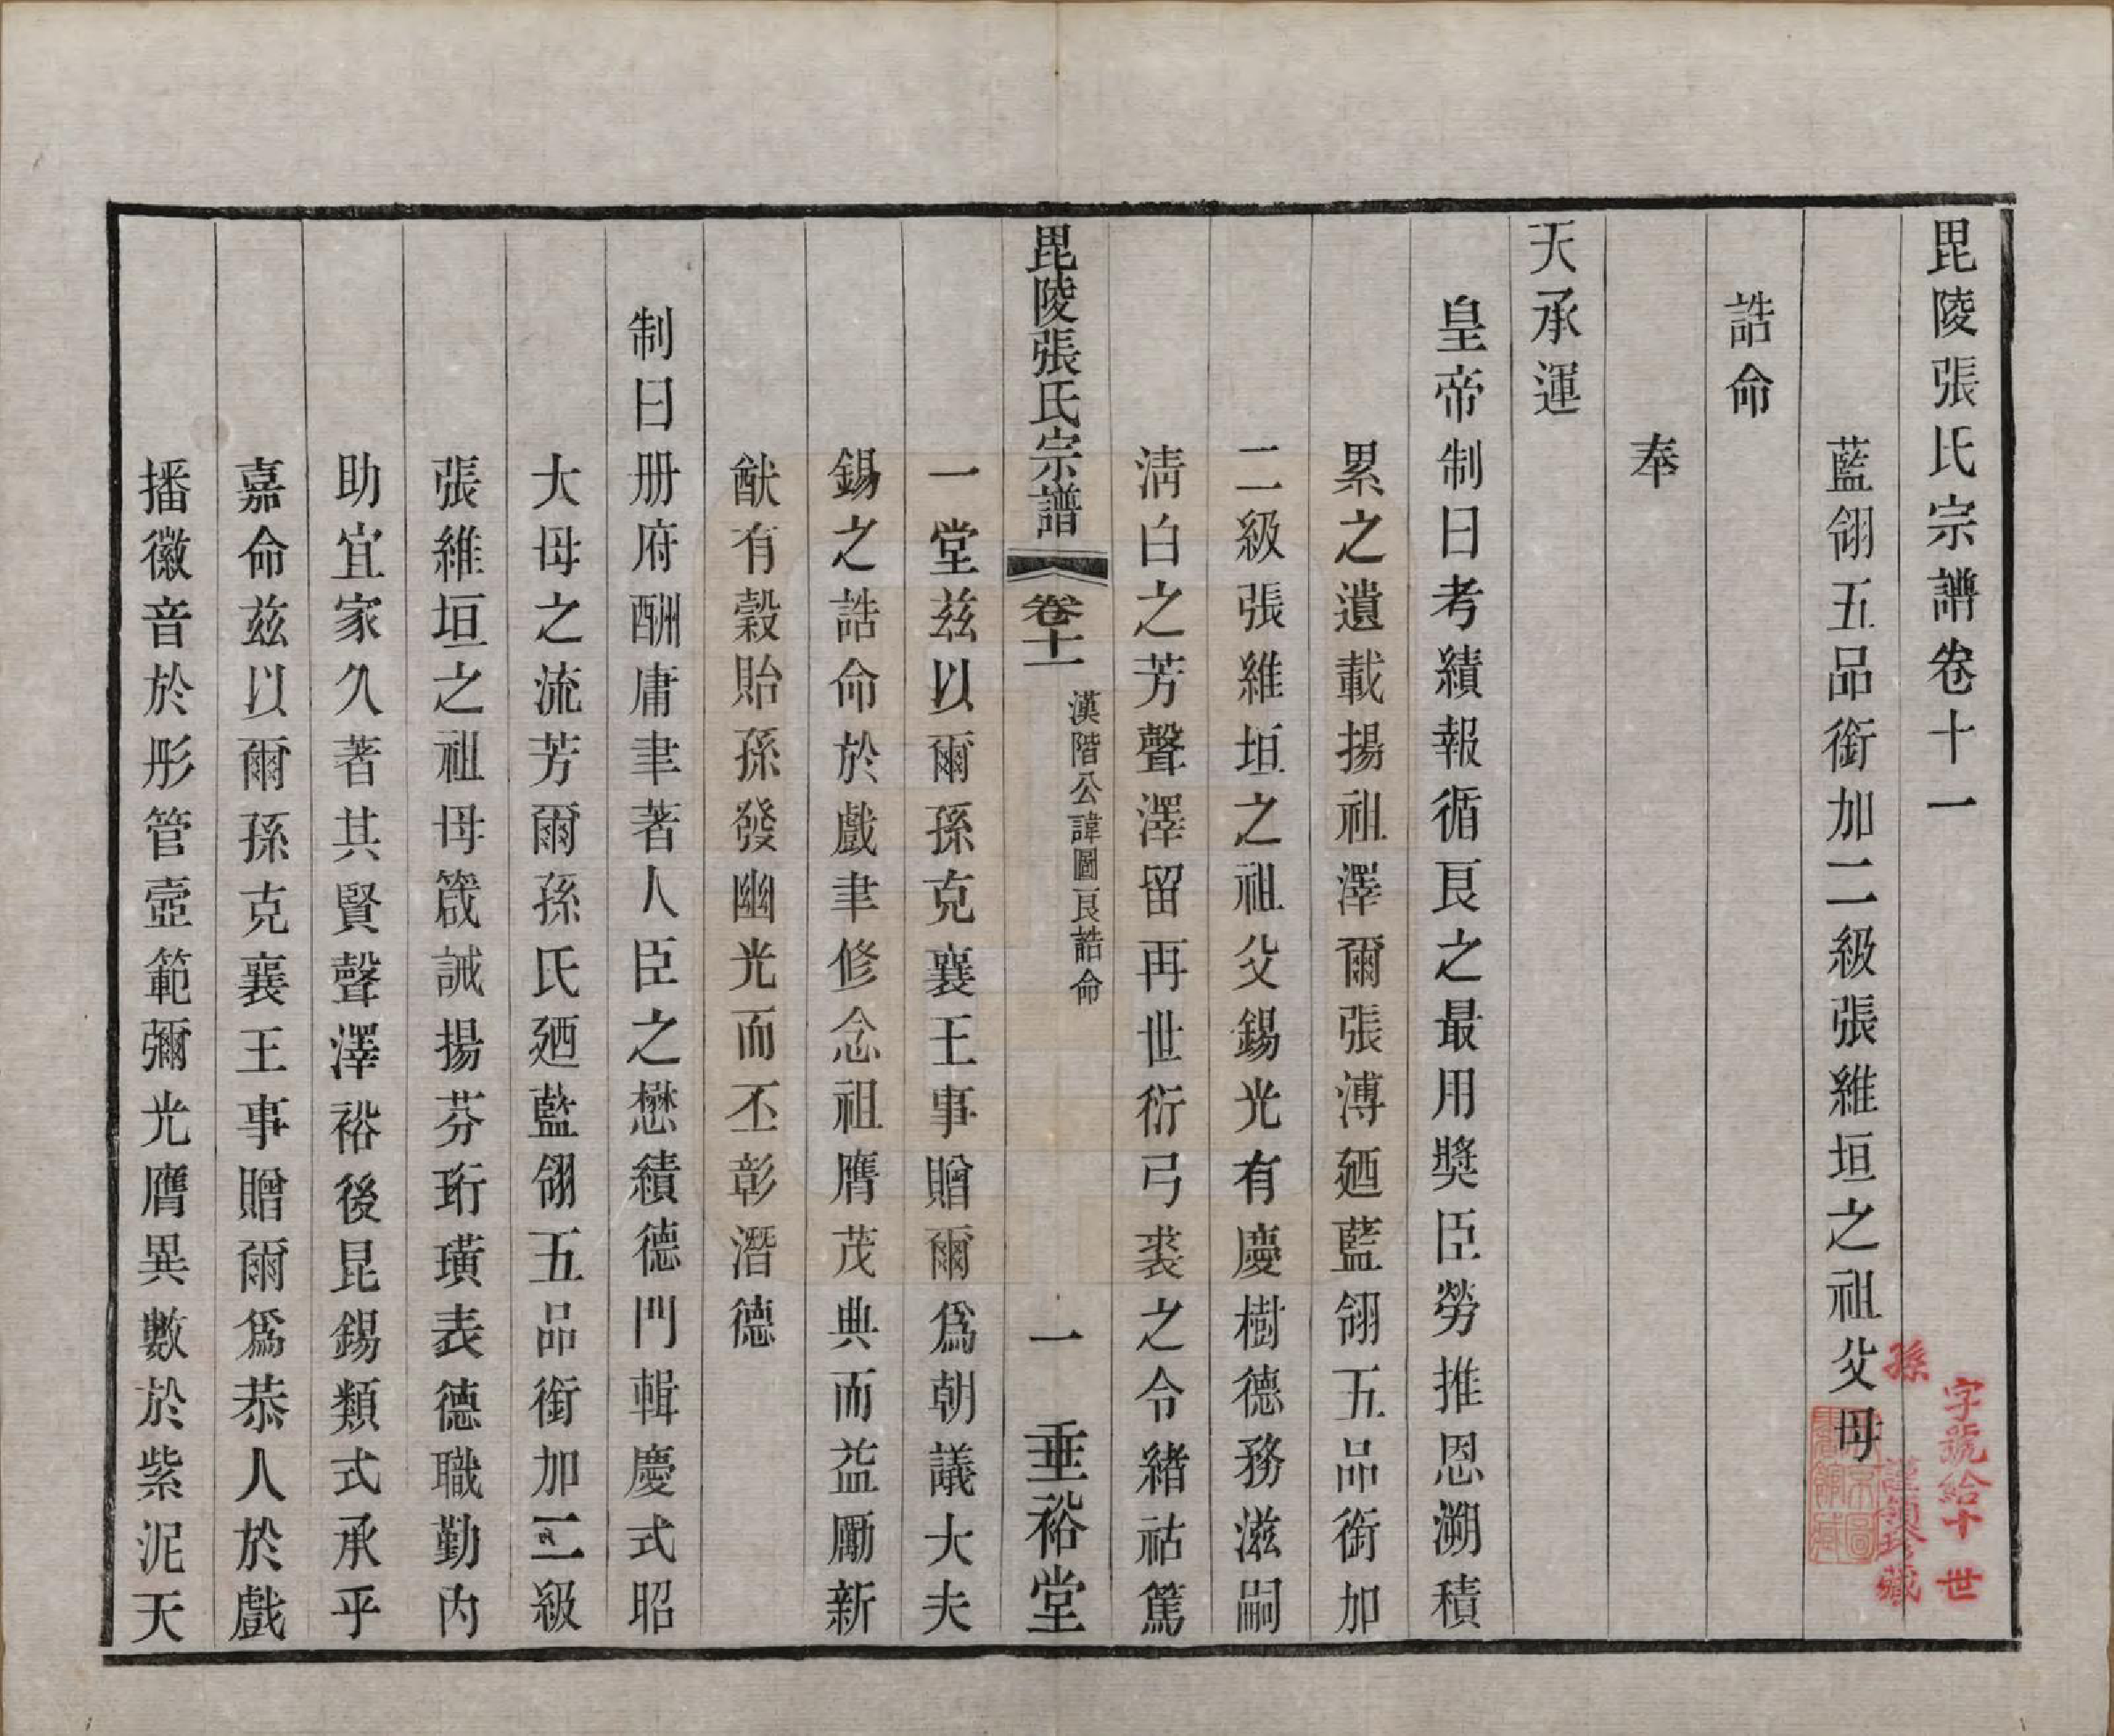 毘陵張氏宗譜卷十一
藍翎五品銜加二級張維垣之祖父母
誥命
奉
天承運
皇帝制曰考績報循良之最用奬臣勞推恩溯積
累之遺載揚祖澤爾張溥廼藍翎五品銜加
二級張維垣之祖父錫光有慶樹德務滋嗣
淸白之芳聲澤留再世衍弓裘之令緒祜篤
毘陵張氏宗譜
卷十一
漢階公諱圖良誥命
一
垂裕堂
一堂茲以爾孫克襄王事贈爾爲朝議大夫
錫之誥命於戲聿修念祖膺茂典而益勵新
猷有穀貽孫發幽光而丕彰潛德
制曰册府酬庸聿著人臣之懋績德門輯慶式昭
大母之流芳爾孫氏廼藍翎五品銜加二級
張維垣之祖母箴誡揚芬珩璜表德職勤內
助宜家久著其賢聲澤裕後昆錫類式承乎
嘉命茲以爾孫克襄王事贈爾爲恭人於戲
播徽音於彤管壼範彌光膺異數於紫泥天
字號給十世
孫
謹領珍藏